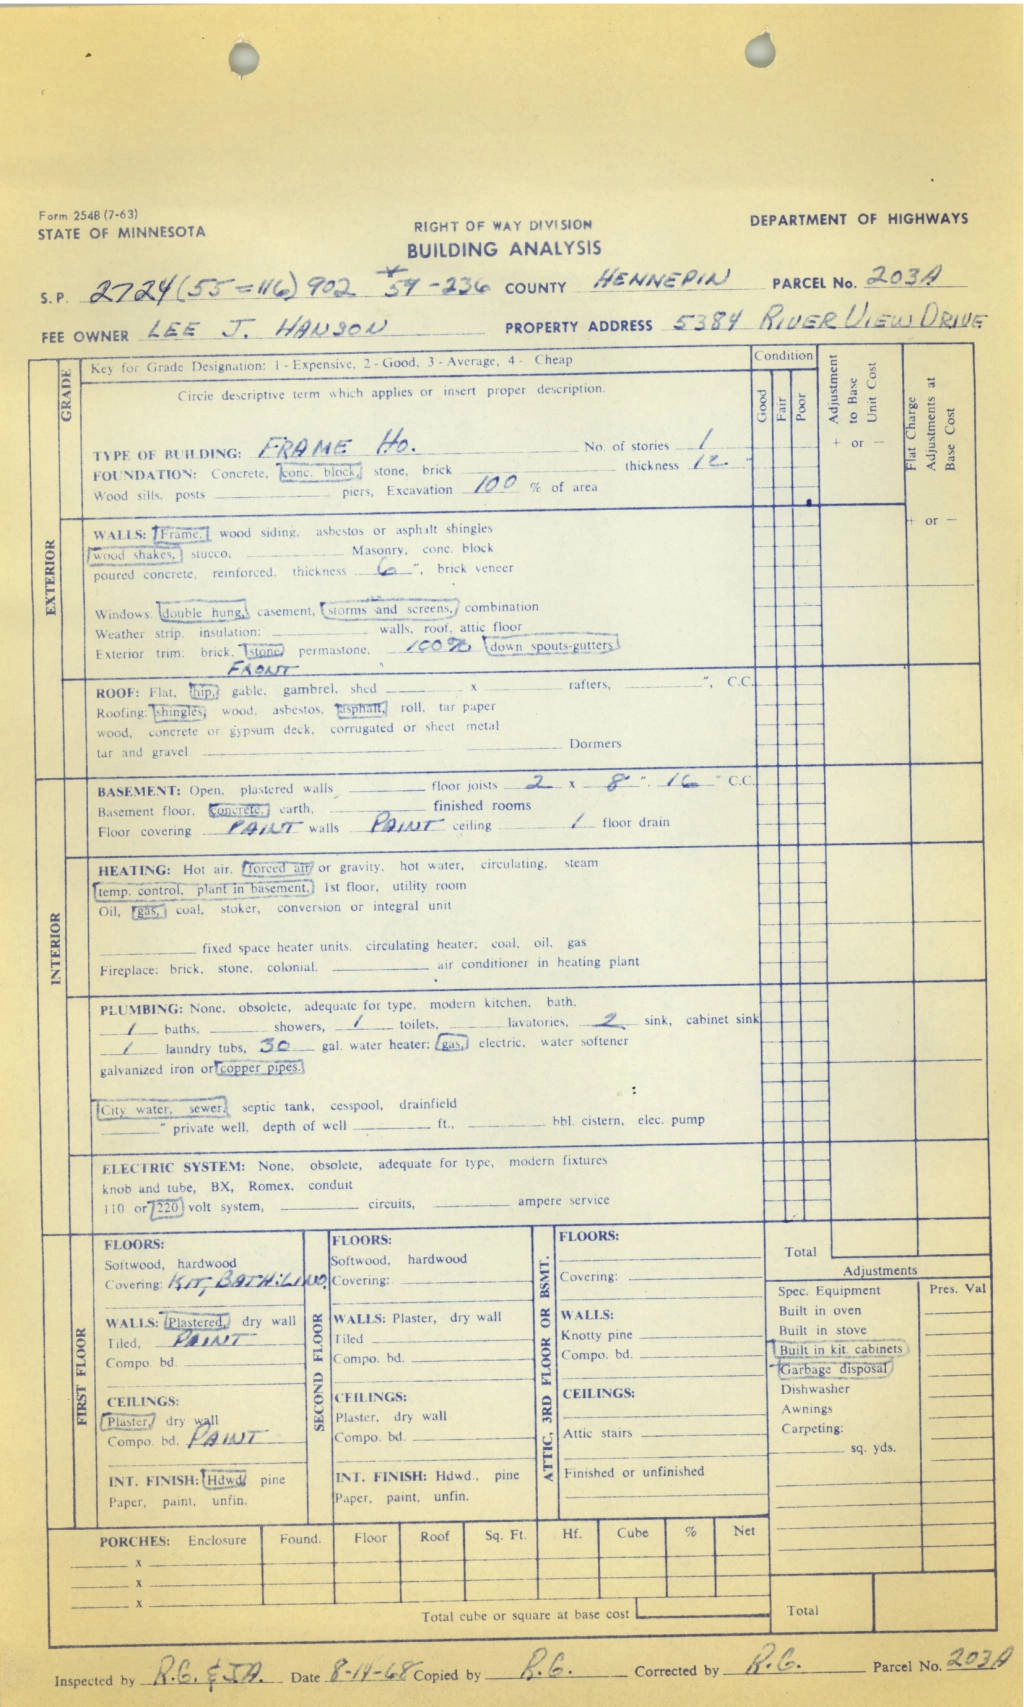 Form 2548 (7-63)
STATE OF MINNESOTA
RIGHT OF WAY DIVISION
DEPARTMENT OF HIGHWAYS
BUILDING ANALYSIS
S. P. 2724 (55=116) 902 59-236 COUNTY HENNEPIN PARCEL No. 203A
FEE OWNER LEE J. HANSON PROPERTY ADDRESS 5384 RIVER VIEW DRIVE
GRADE
Key for Grade Designation: 1 - Expensive, 2 - Good, 3 - Average, 4 - Cheap
Condition
Good
Fair
Poor
Adjustment to Base Unit Cost
+ or -
Flat Charge Adjustments at Base Cost
+ or -
Circle descriptive term which applies or insert proper description.
TYPE OF BUILDING: FRAME HO. No. of stories 1
FOUNDATION: Concrete, conc. block, stone, brick thickness 12
Wood sills, posts piers, Excavation 100 % of area
EXTERIOR
WALLS: Frame, wood siding, asbestos or asphalt shingles
wood shakes, stucco, Masonry, conc. block
poured concrete, reinforced, thickness 6 ", brick veneer
Windows: double hung, casement, storms and screens, combination
Weather strip, insulation: walls, roof, attic floor
Exterior trim: brick, stone, permastone, 100% down spouts-gutters
FRONT
ROOF: Flat, hip, gable, gambrel, shed x rafters, ", C.C.
Roofing: shingles, wood, asbestos, asphalt, roll, tar paper
wood, concrete or gypsum deck, corrugated or sheet metal
tar and gravel Dormers
INTERIOR
BASEMENT: Open, plastered walls floor joists 2 x 8 ", 16 " C.C.
Basement floor, concrete, earth, finished rooms
Floor covering PAINT walls PAINT ceiling 1 floor drain
HEATING: Hot air, forced air or gravity, hot water, circulating, steam
temp. control, plant in basement, 1st floor, utility room
Oil, gas, coal, stoker, conversion or integral unit
fixed space heater units, circulating heater; coal, oil, gas
Fireplace: brick, stone, colonial, air conditioner in heating plant
PLUMBING: None, obsolete, adequate for type, modern kitchen, bath,
1 baths, showers, 1 toilets, lavatories, 2 sink, cabinet sink
1 laundry tubs, 30 gal. water heater: gas, electric, water softener
galvanized iron or copper pipes.
City water, sewer, septic tank, cesspool, drainfield
" private well, depth of well ft., bbl. cistern, elec. pump
ELECTRIC SYSTEM: None, obsolete, adequate for type, modern fixtures
knob and tube, BX, Romex, conduit
110 or 220 volt system, circuits, ampere service
FIRST FLOOR
FLOORS:
Softwood, hardwood
Covering: KIT, BATH: LINO.
WALLS: Plastered, dry wall
Tiled, PAINT
Compo. bd.
CEILINGS:
Plaster, dry wall
Compo. bd. PAINT
INT. FINISH: Hdwd. pine
Paper, paint, unfin.
SECOND FLOOR
FLOORS:
Softwood, hardwood
Covering:
WALLS: Plaster, dry wall
Tiled
Compo. bd.
CEILINGS:
Plaster, dry wall
Compo. bd.
INT. FINISH: Hdwd., pine
Paper, paint, unfin.
ATTIC, 3RD FLOOR OR BSMT.
FLOORS:
Covering:
WALLS:
Knotty pine
Compo. bd.
CEILINGS:
Attic stairs
Finished or unfinished
Total
Adjustments
Spec. Equipment Pres. Val
Built in oven
Built in stove
Built in kit. cabinets
Garbage disposal
Dishwasher
Awnings
Carpeting:
sq. yds.
PORCHES: Enclosure Found. Floor Roof Sq. Ft. Hf. Cube % Net
x
x
x
Total cube or square at base cost
Total
Inspected by R.G. & J.A. Date 8-14-68 Copied by R.G. Corrected by R.G. Parcel No. 203A